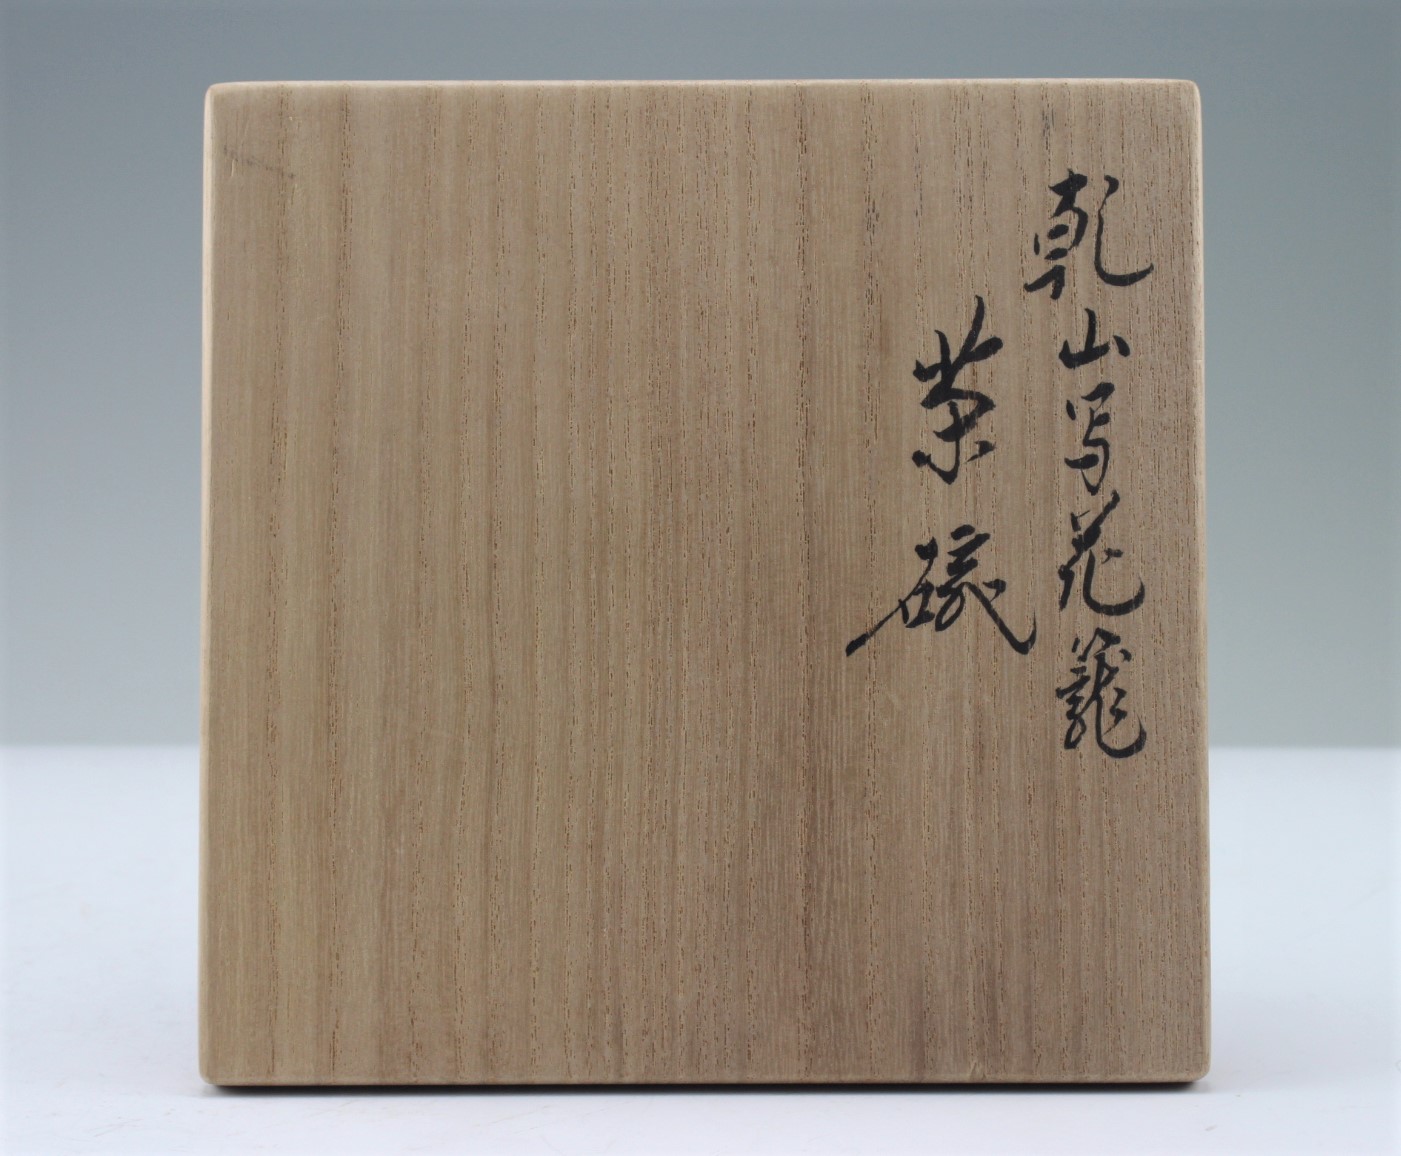 乾山写花籠
茶碗